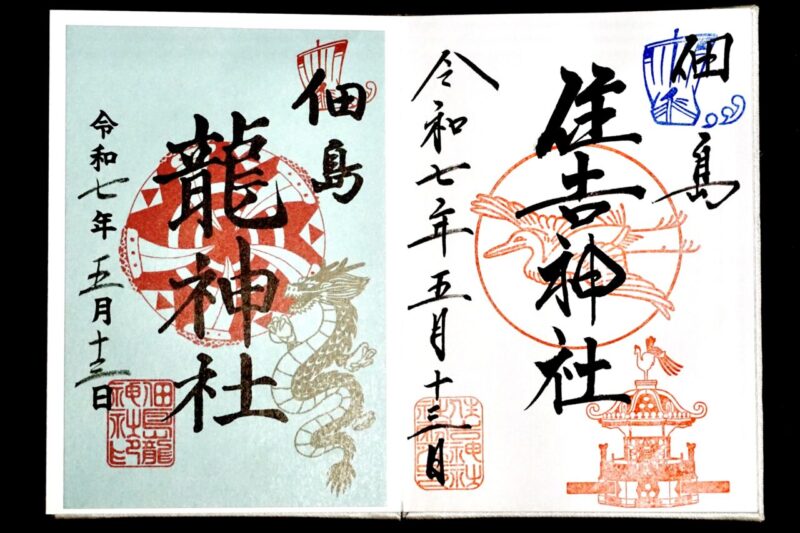 佃島
住吉神社
令和七年五月十三日
佃島
龍神社
令和七年五月十三日
佃島龍
神社印